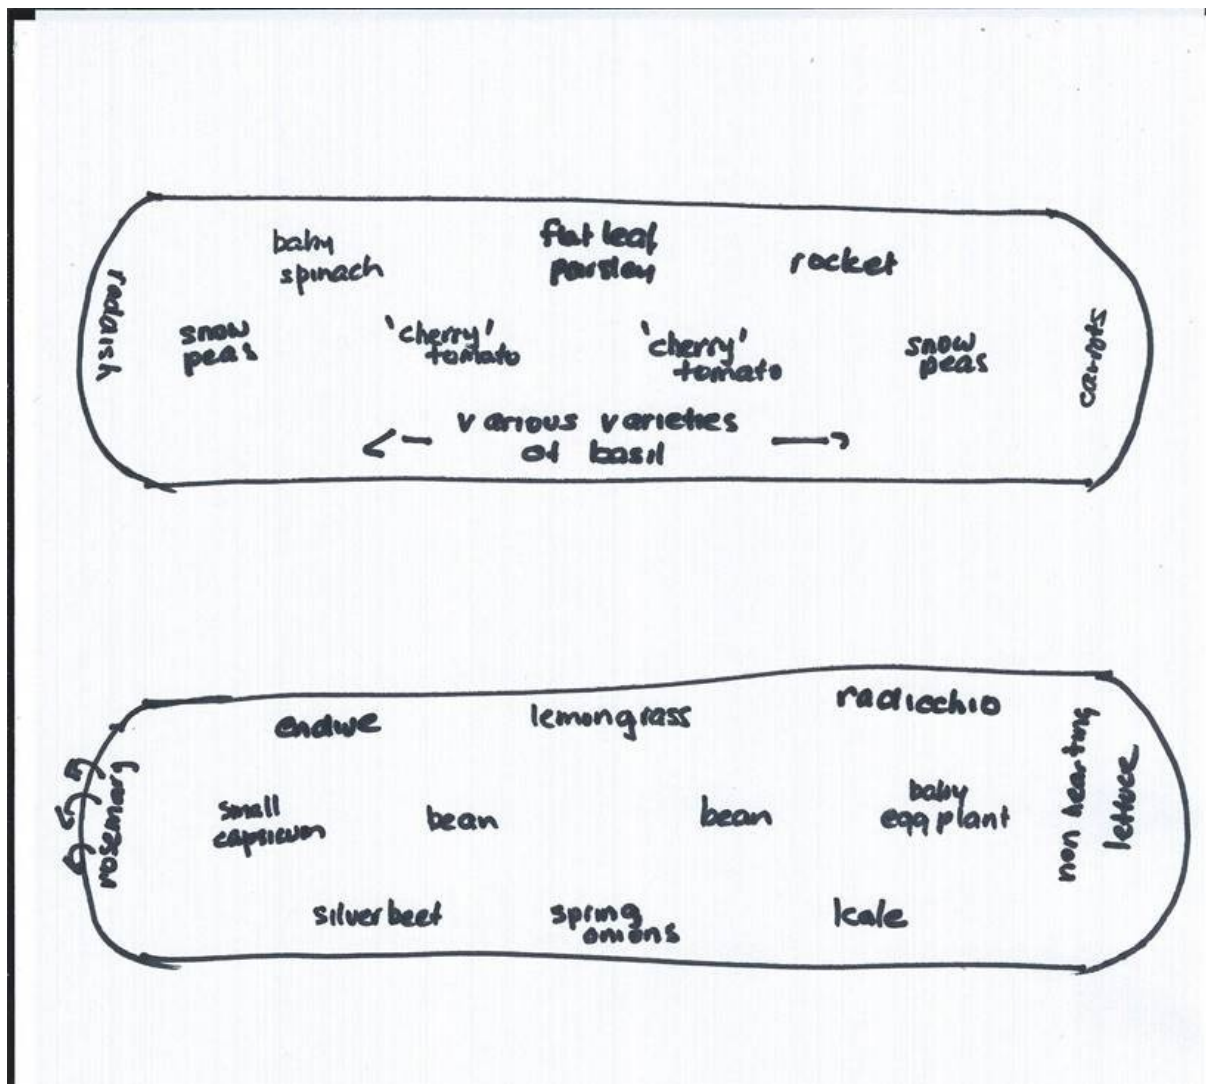 baby
spinach
flat leaf
parsley
rocket
radish
snow
peas
'cherry'
tomato
'cherry'
tomato
snow
peas
carrots
various varieties
of basil
endive
lemongrass
radicchio
rosemary
small
capsicum
bean
bean
baby
egg plant
non hearting
lettuce
silverbeet
spring
onions
kale